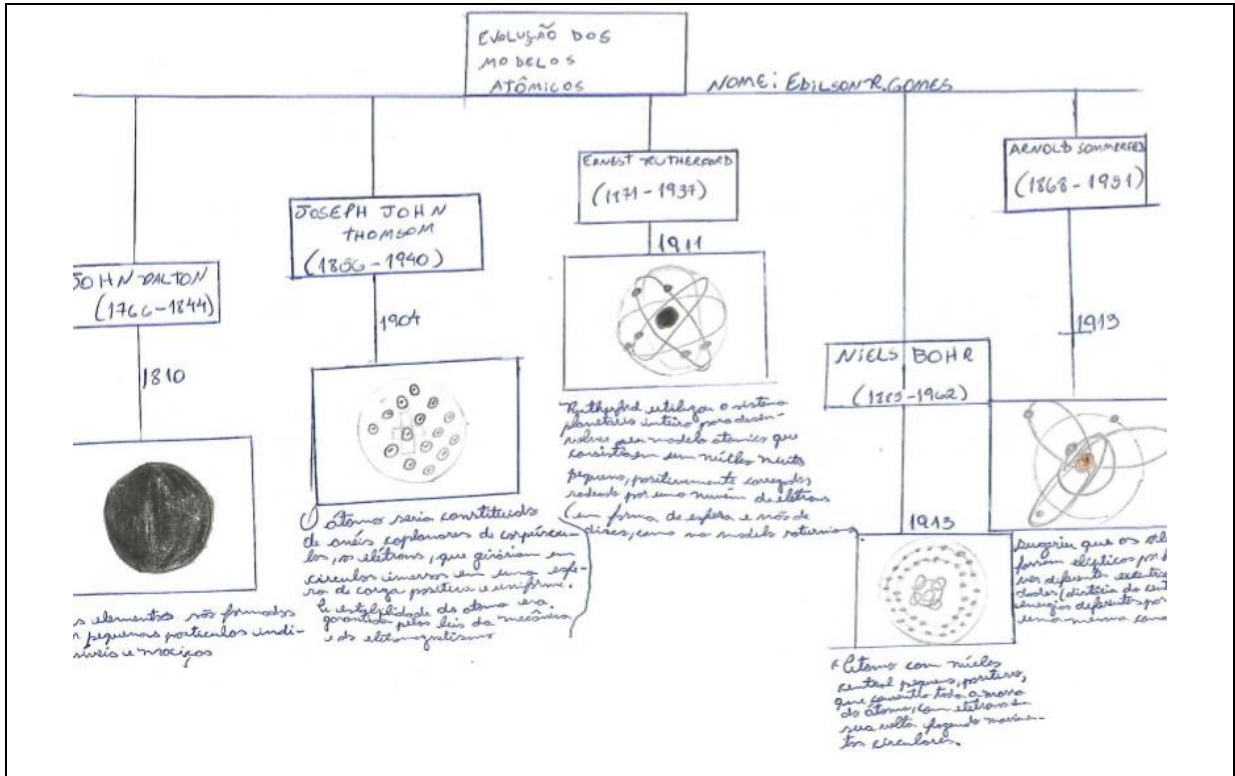 EVOLUÇÃO DOS
MODELOS
ATÔMICOS
NOME: EDILSON R. GOMES
JOHN DALTON
(1766-1844)
1810
s elementos são formados
r pequenas partículas indi-
síveis e maciças
JOSEPH JOHN
THOMSOM
(1856-1940)
1904
O átomo seria constituido
de anéis coplanares de corpúscu-
los, os elétrons, que girariam em
circulos imersos em uma esfe-
ra de carga positiva e uniforme.
A estabilidade do átomo era
garantida pelas leis da mecânica
e do eletromagnetismo
ERNEST RUTHERFORD
(1871-1937)
1911
Rutherford utilizou o sistema
planetário inteiro para desen-
volver seu modelo atomico que
consistia em um núcleo muito
pequeno, positivamente carregado,
rodeado por uma nuvem de elétrons
(em forma de esfera e não de
disco, como no modelo saturniano
NIELS BOHR
(1885-1962)
1913
* Átomo com núcleo
central pequeno, positivo,
que concentra toda a massa
do átomo, com elétrons em
sua volta fazendo movimen-
tos circulares.
ARNOLD SOMMERFED
(1868-1951)
1913
Sugeriu que os
fossem elípticos por
ver diferentes
dades (distância do cent
energias diferentes por
uma mesma cama